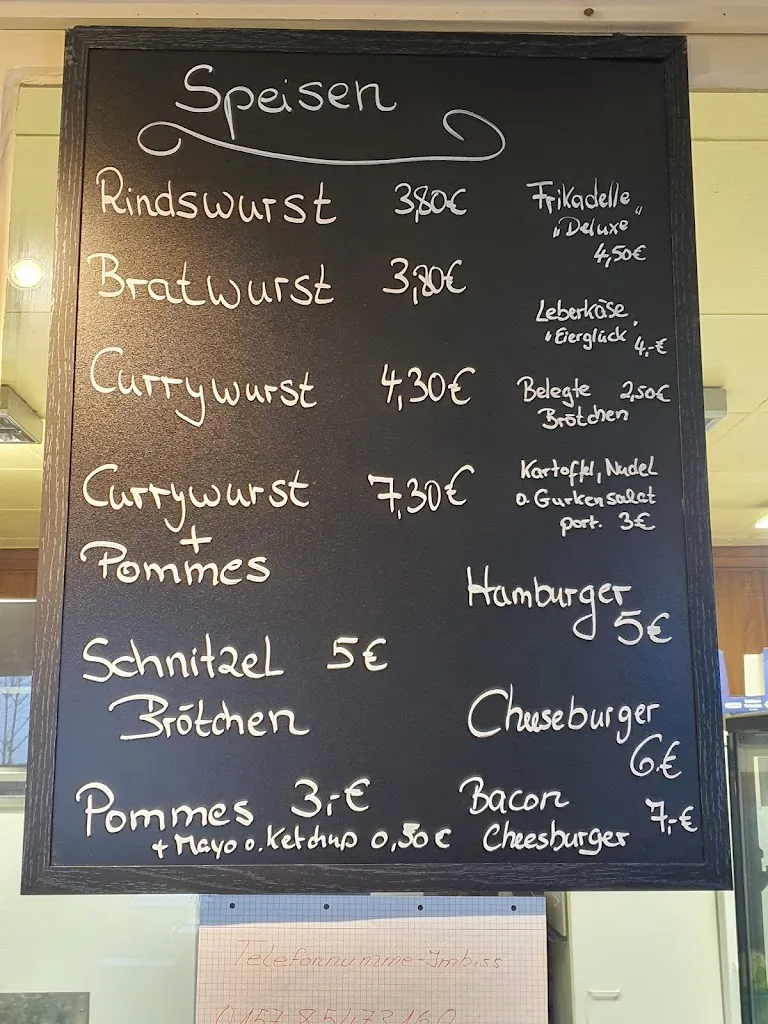 Speisen
Rindswurst 3,80€
Bratwurst 3,80€
Currywurst 4,30€
Currywurst 7,30€
+
Pommes
Schnitzel 5€
Brötchen
Pommes 3,-€
+ Mayo o. Ketchup 0,50€
Frikadelle
"Deluxe"
4,50€
Leberkäse
"Eierglück" 4,-€
Belegte 2,50€
Brötchen
Kartoffel, Nudel
o. Gurkensalat
port. 3€
Hamburger
5€
Cheeseburger
6€
Bacon 7,-€
Cheesburger
Telefonnumme-Imbiss